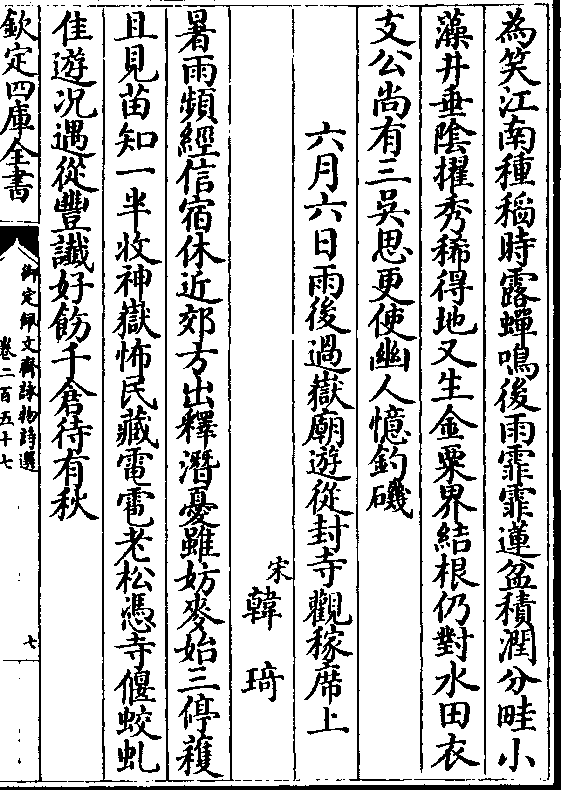 為笑江南種稻時露蟬鳴後雨霏霏蓮盆積潤分畦小
藻井垂陰擢秀稀得地又生金粟界結根仍對水田衣
支公尚有三吳思更使幽人憶釣磯
六月六日雨後過嶽廟遊從封寺觀稼席上
宋韓琦
暑雨頻經信宿休近郊方出釋潛憂雖妨麥始三停穫
且見苗知一半收神嶽怖民藏電雹老松憑寺偃蛟虬
佳遊况遇從豐讖好飭千倉待有秋
欽定四庫全書
御定佩文齋詠物詩選
卷二百五十七
七